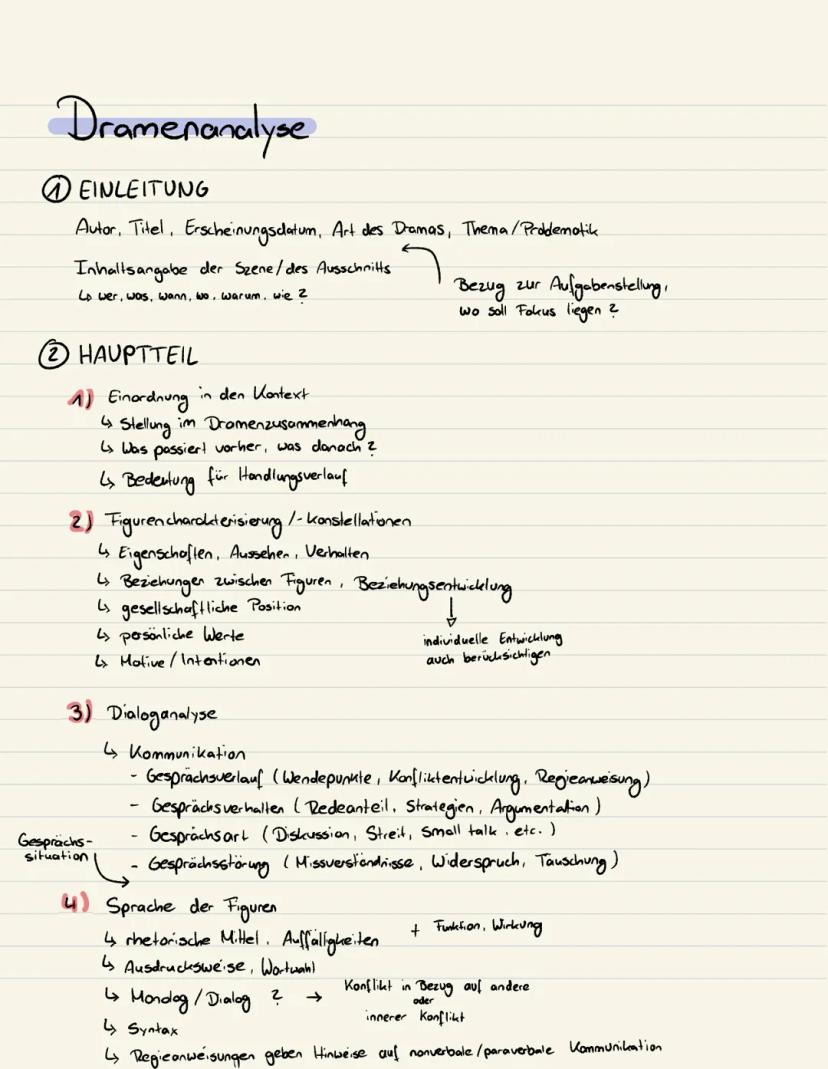 Dramenanalyse
① EINLEITUNG
Autor, Titel, Erscheinungsdatum, Art des Dramas, Thema/Problematik
Inhaltsangabe der Szene/des Ausschnitts
↳ wer, was, wann, wo, warum, wie?
Bezug zur Aufgabenstellung,
wo soll Fokus liegen?
② HAUPTTEIL
1) Einordnung in den Kontext
↳ Stellung im Dramenzusammenhang
↳ Was passiert vorher, was danach?
↳ Bedeutung für Handlungsverlauf
2) Figurencharakterisierung/-konstellationen
↳ Eigenschaften, Aussehen, Verhalten
↳ Beziehungen zwischen Figuren, Beziehungsentwicklung
↳ gesellschaftliche Position
↳ persönliche Werte
↳ Motive/Intentionen
individuelle Entwicklung
auch berücksichtigen
3) Dialoganalyse
↳ Kommunikation
- Gesprächsverlauf (Wendepunkte, Konfliktentwicklung, Regieanweisung)
- Gesprächsverhalten (Redeanteil, Strategien, Argumentation)
- Gesprächsart (Diskussion, Streit, Small talk, etc.)
- Gesprächsstörung (Missverständnisse, Widerspruch, Täuschung)
Gesprächs-
situation
4) Sprache der Figuren
↳ rhetorische Mittel, Auffälligkeiten + Funktion, Wirkung
↳ Ausdrucksweise, Wortwahl
↳ Monolog/Dialog? → Konflikt in Bezug auf andere
oder
innerer Konflikt
↳ Syntax
↳ Regieanweisungen geben Hinweise auf nonverbale/paraverbale Kommunikation